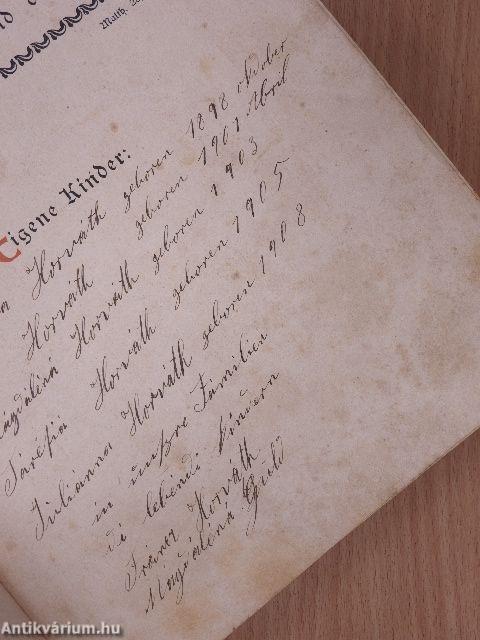 Matth. 20
Eigene Kinder:
Horváth geboren 1898 oktober
Horváth geboren 1901 Abril
Mágdálená Horváth geboren 1903
Horváth geboren 1905
Juliánna Horváth geboren 1908
in unsre Familien
di lebendi kindern
Fránz Horváth
Mágdáléná
Antikvárium.hu